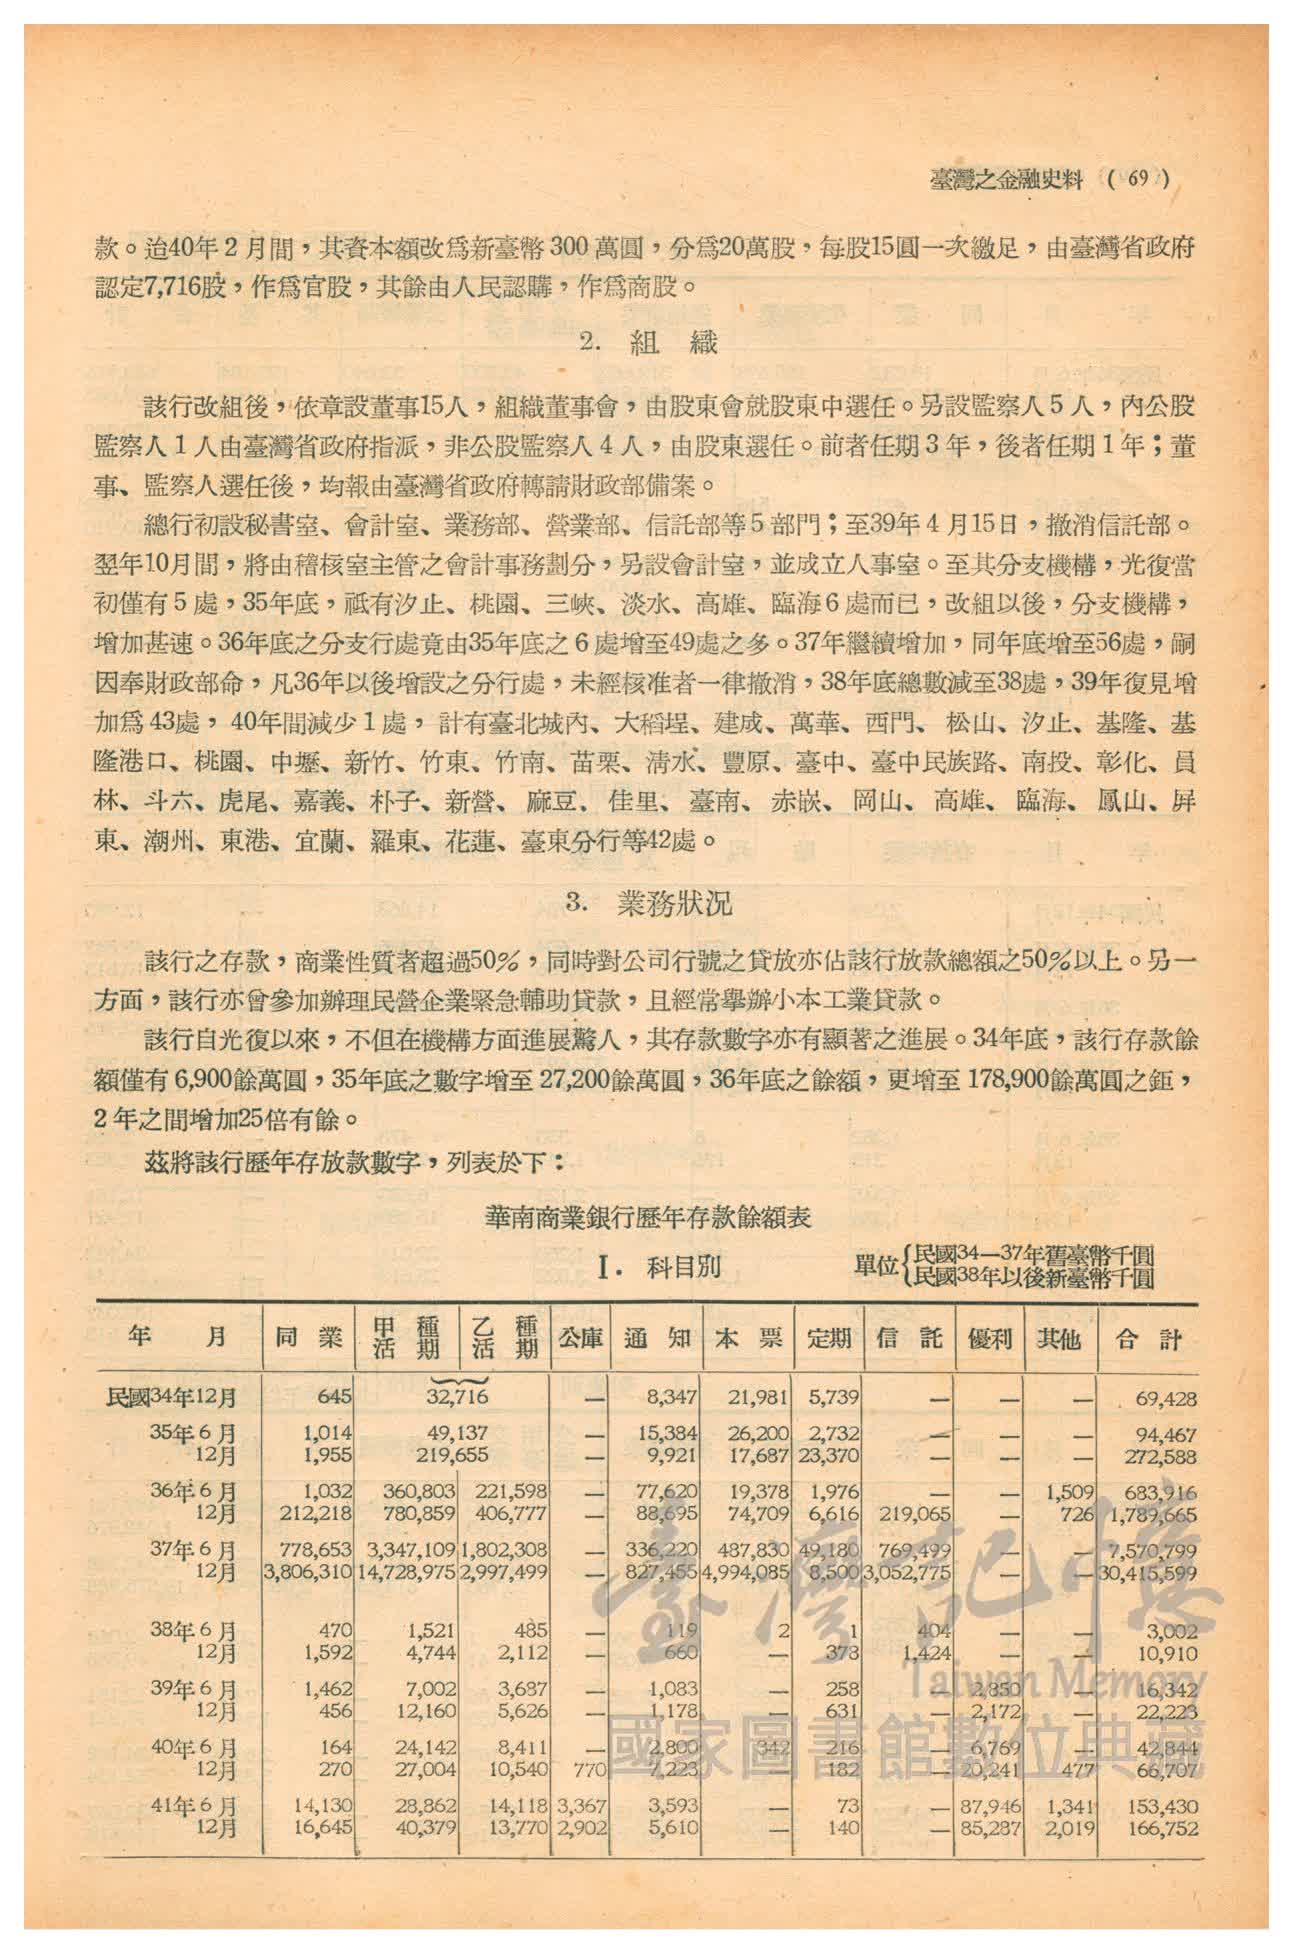 臺灣之金融史料 ( 69 )
款。迨40年2月間，其資本額改爲新臺幣300萬圓，分爲20萬股，每股15圓一次繳足，由臺灣省政府
認定7,716股，作爲官股，其餘由人民認購，作爲商股。
2. 組 織
該行改組後，依章設董事15人，組織董事會，由股東會就股東中選任。另設監察人5人，內公股
監察人1人由臺灣省政府指派，非公股監察人4人，由股東選任。前者任期3年，後者任期1年；董
事、監察人選任後，均報由臺灣省政府轉請財政部備案。
總行初設秘書室、會計室、業務部、營業部、信託部等5部門；至39年4月15日，撤消信託部。
翌年10月間，將由稽核室主管之會計事務劃分，另設會計室，並成立人事室。至其分支機構，光復當
初僅有5處，35年底，祗有汐止、桃園、三峽、淡水、高雄、臨海6處而已，改組以後，分支機構，
增加甚速。36年底之分支行處竟由35年底之6處增至49處之多。37年繼續增加，同年底增至56處，嗣
因奉財政部命，凡36年以後增設之分行處，未經核准者一律撤消，38年底總數減至38處，39年復見增
加爲43處，40年間減少1處，計有臺北城內、大稻埕、建成、萬華、西門、松山、汐止、基隆、基
隆港口、桃園、中壢、新竹、竹東、竹南、苗栗、清水、豐原、臺中、臺中民族路、南投、彰化、員
林、斗六、虎尾、嘉義、朴子、新營、麻豆、佳里、臺南、赤嵌、岡山、高雄、臨海、鳳山、屏
東、潮州、東港、宜蘭、羅東、花蓮、臺東分行等42處。
3. 業務狀況
該行之存款，商業性質者超過50%，同時對公司行號之貸放亦佔該行放款總額之50%以上。另一
方面，該行亦曾參加辦理民營企業緊急輔助貸款，且經常舉辦小本工業貸款。
該行自光復以來，不但在機構方面進展驚人，其存款數字亦有顯著之進展。34年底，該行存款餘
額僅有6,900餘萬圓，35年底之數字增至27,200餘萬圓，36年底之餘額，更增至178,900餘萬圓之鉅，
2年之間增加25倍有餘。
茲將該行歷年存放款數字，列表於下：
華南商業銀行歷年存款餘額表
I. 科目別 單位{民國34—37年舊臺幣千圓
民國38年以後新臺幣千圓
年 月 同業 甲種活期 乙種活期 公庫 通知 本票 定期 信託 優利 其他 合計
民國34年12月 645 32,716 — 8,347 21,981 5,739 — — — 69,428
35年6月 1,014 49,137 — 15,384 26,200 2,732 — — — 94,467
12月 1,955 219,655 — 9,921 17,687 23,370 — — — 272,588
36年6月 1,032 360,803 221,598 — 77,620 19,378 1,976 — — 1,509 683,916
12月 212,218 780,859 406,777 — 88,695 74,709 6,616 219,065 — 726 1,789,665
37年6月 778,653 3,347,109 1,802,308 — 336,220 487,830 49,180 769,499 — — 7,570,799
12月 3,806,310 14,728,975 2,997,499 — 827,455 4,994,085 8,500 3,052,775 — — 30,415,599
38年6月 470 1,521 485 — 119 2 1 404 — — 3,002
12月 1,592 4,744 2,112 — 660 — 378 1,424 — — 10,910
39年6月 1,462 7,002 3,687 — 1,083 — 258 — 2,850 — 16,342
12月 456 12,160 5,626 — 1,178 — 631 — 2,172 — 22,223
40年6月 164 24,142 8,411 — 2,800 342 216 — 6,769 — 42,844
12月 270 27,004 10,540 770 7,223 — 182 — 20,241 477 66,707
41年6月 14,130 28,862 14,118 3,367 3,593 — 73 — 87,946 1,341 153,430
12月 16,645 40,379 13,770 2,902 5,610 — 140 — 85,287 2,019 166,752
臺灣記憶
Taiwan Memory
國家圖書館數位典藏